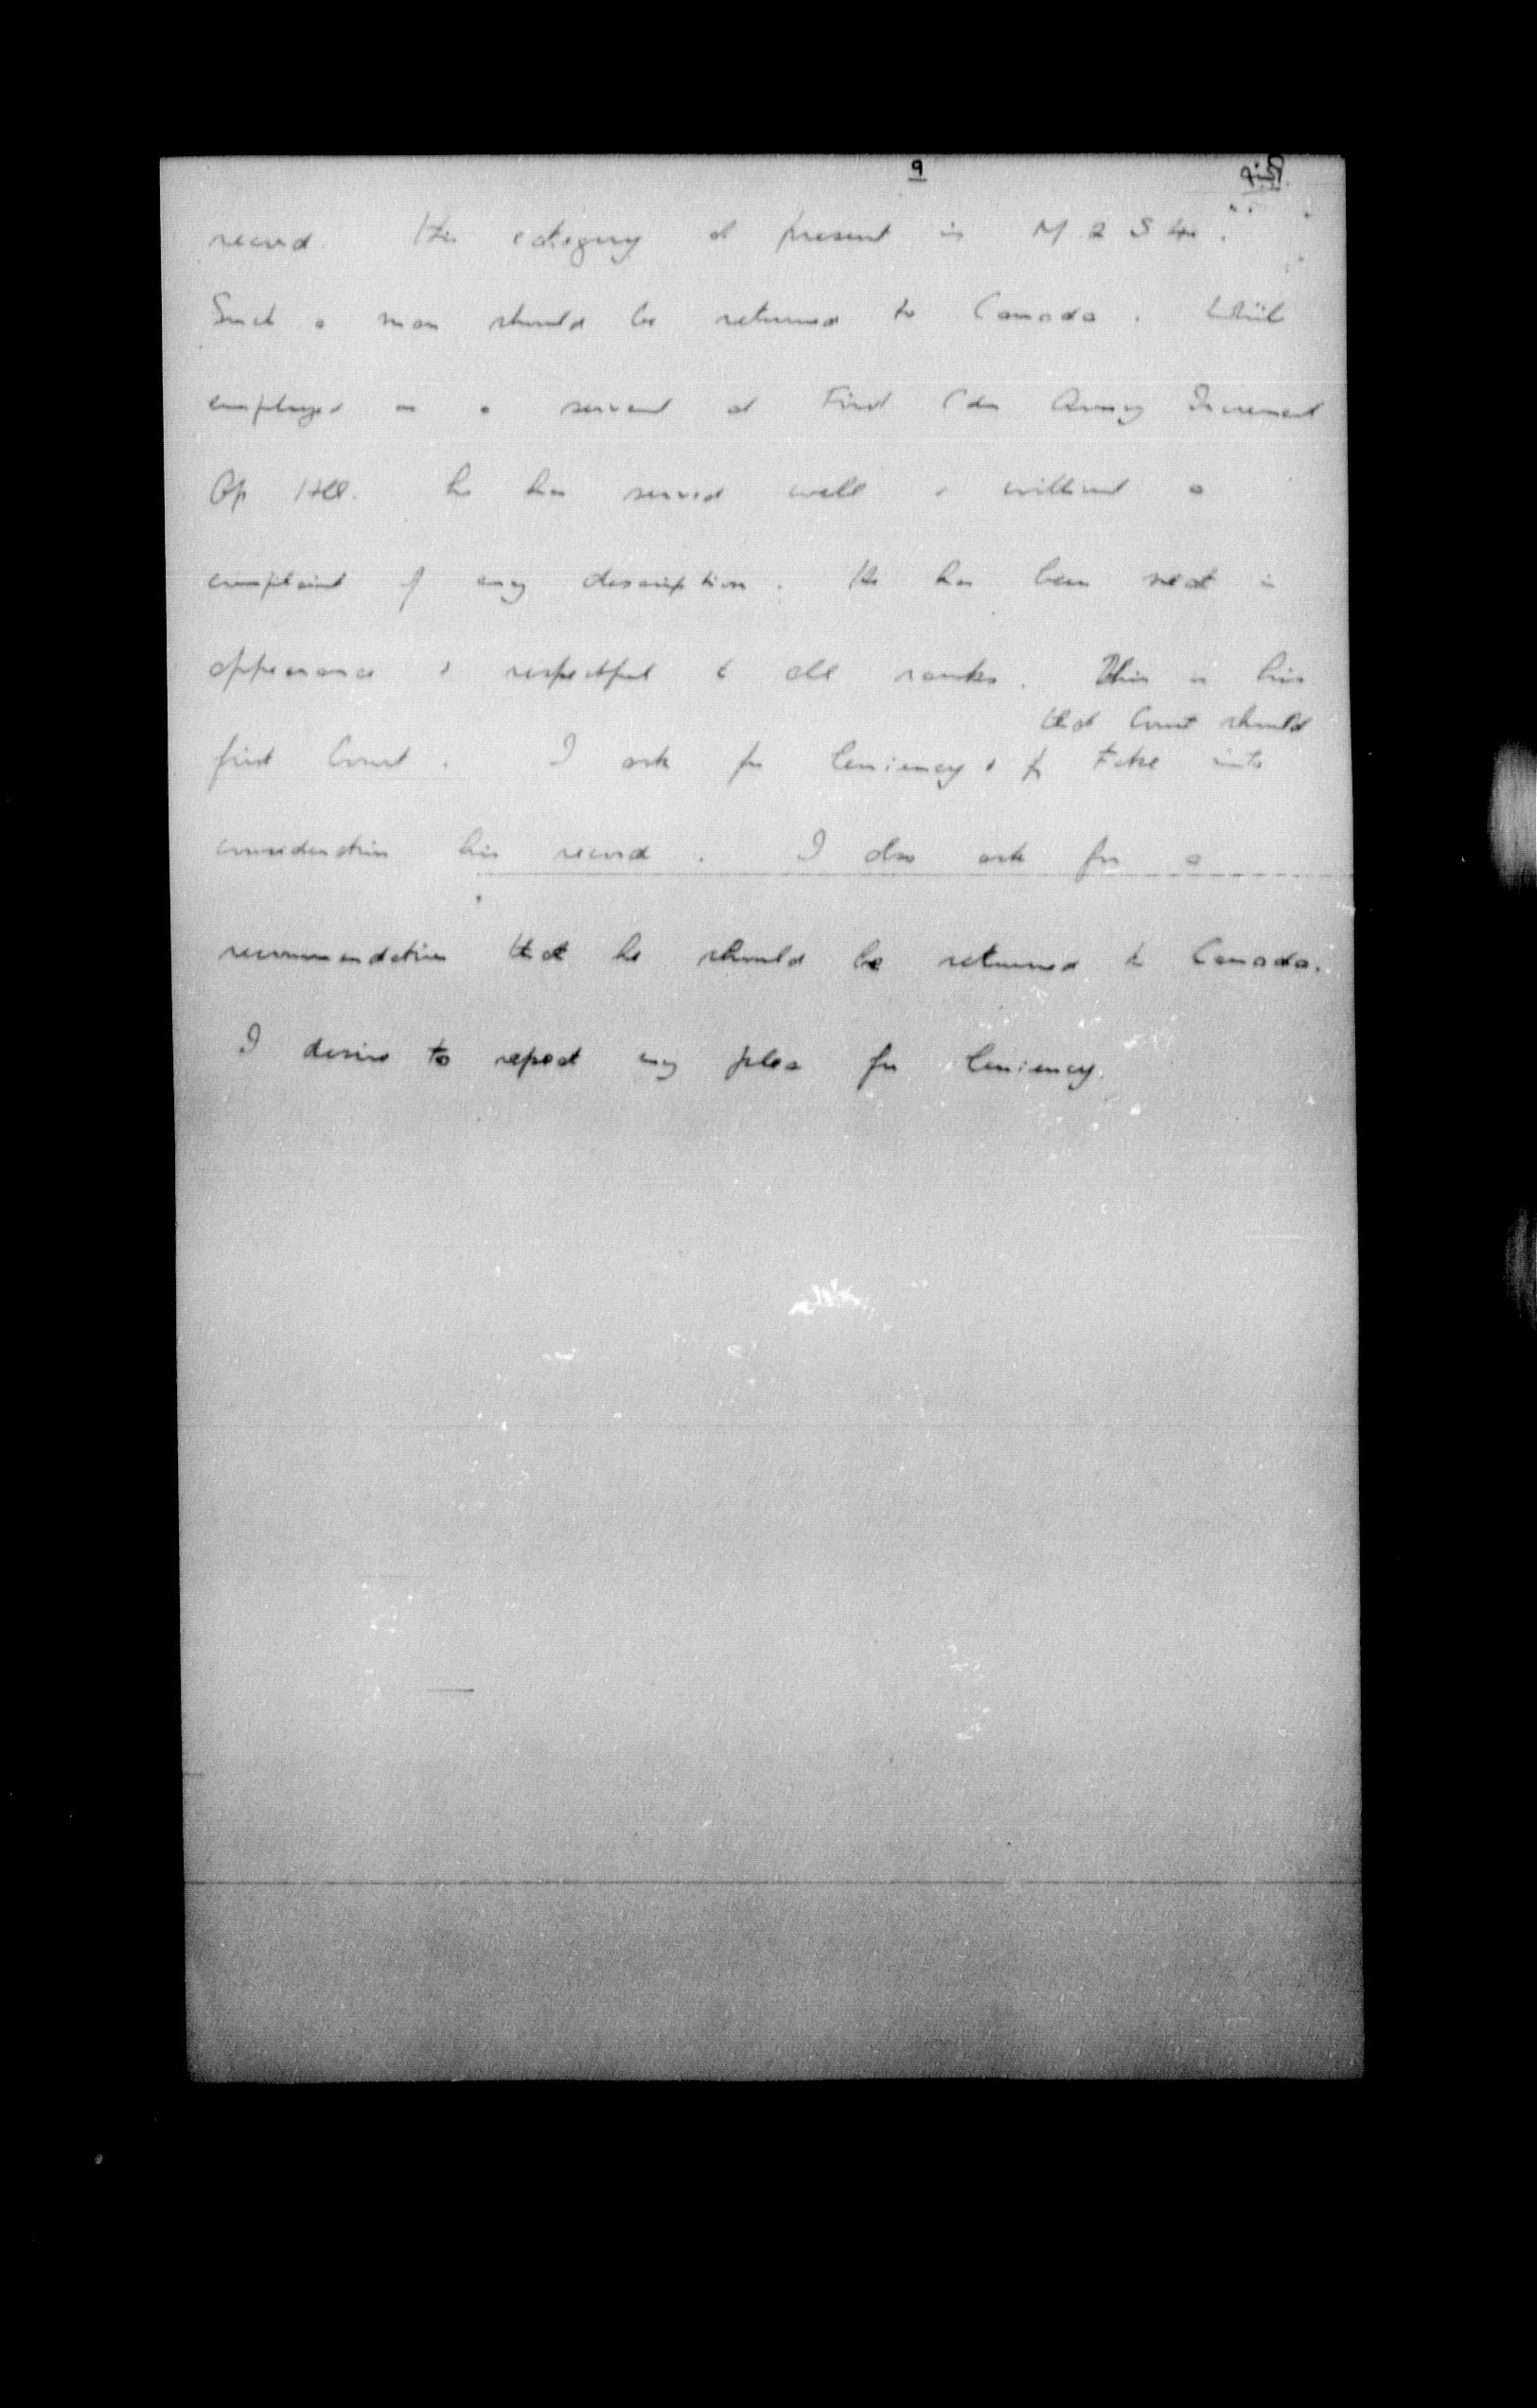 9
record. His category at present is M 2 S 4.
Such a man should be returned to Canada. While
employed as a servant at First Cdn Army Increment
he has served well & without a
complaint of any description. He has been neat in
appearance & respectful to all ranks. This is his
that Court should
first Court. I ask for leniency & take into
consideration his record. I also ask for a
recommendation that he should be returned to Canada.
I desire to repeat my plea for leniency.